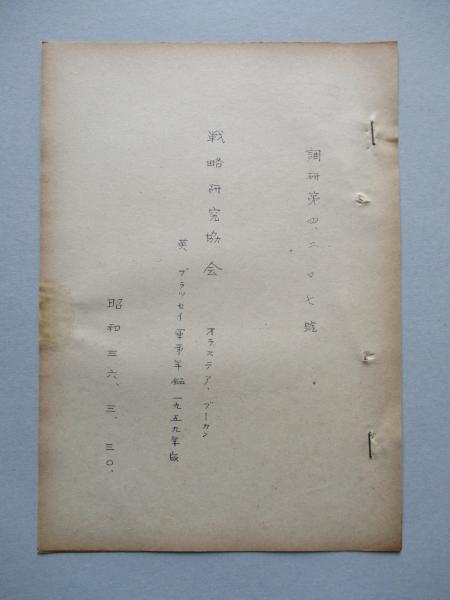 調研第四、二〇七號
戦略研究協会
オラステア、ブーカン
英 ブラッセイ軍事年鑑一九五九年版
昭和三六、三、三〇、